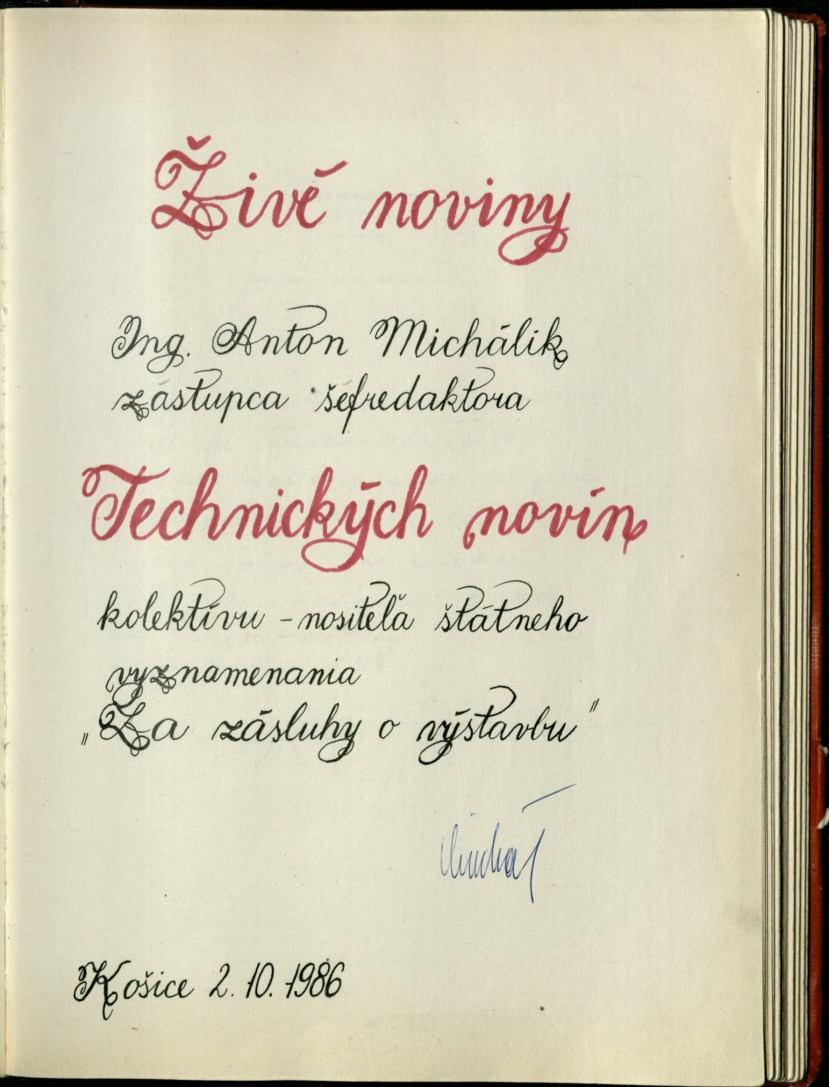 Živé noviny
Ing. Anton Michálik
zástupca šéfredaktora
Technických novín
kolektívu - nositeľa štátneho
vyznamenania
„Za zásluhy o výstavbu"
Košice 2. 10. 1986